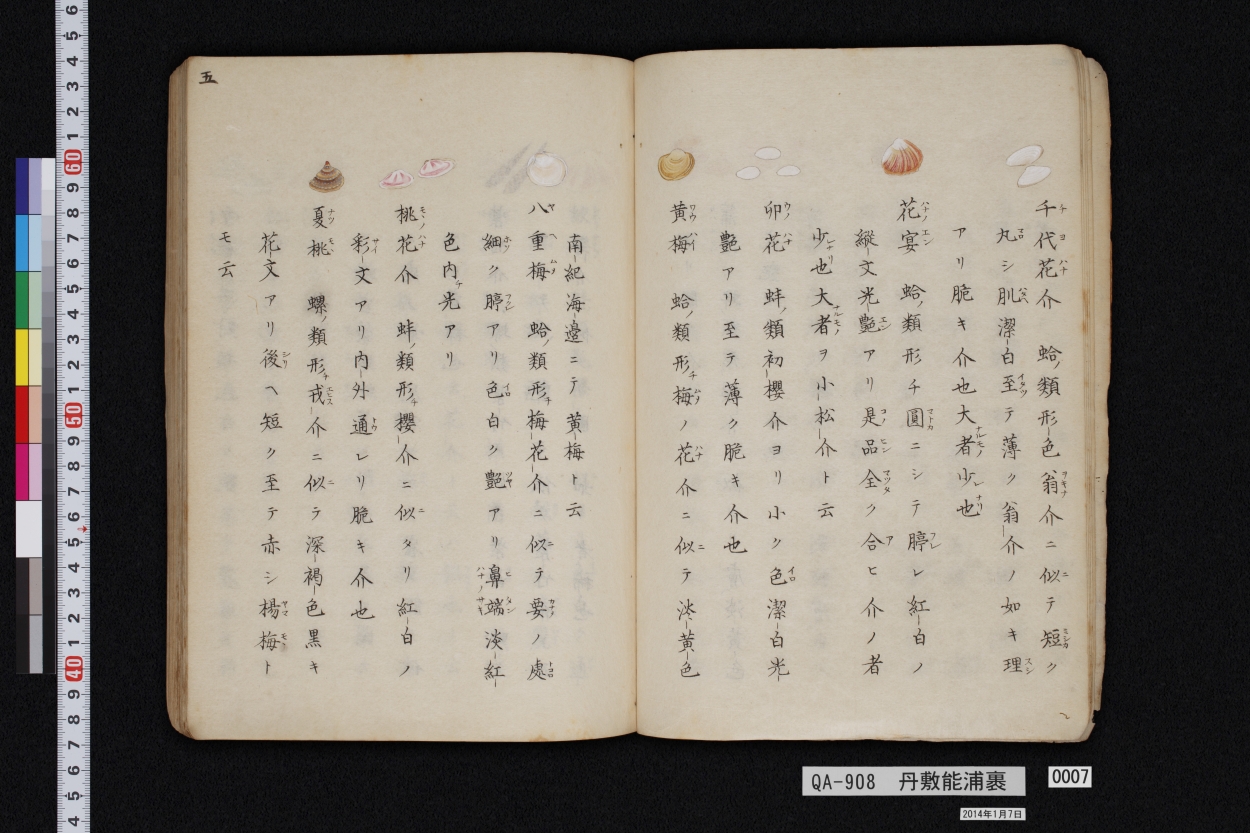 千代花介 蛤ノ類形色翁介ニ似テ短ク
丸シ肌潔白至テ薄ク翁介ノ如キ理
アリ脆キ介也大者少也
花宴 蛤ノ類形チ圓ニシテ脝レ紅白ノ
縦文光艶アリ是品全ク合ヒ介ノ者
少也大者ヲ小松介ト云
卯花 蚌ノ類初櫻介ヨリ小ク色潔白光
艶アリ至テ薄ク脆キ介也
黄梅 蛤ノ類形チ梅ノ花介ニ似テ淡黄色
南紀海邉ニテ黄梅ト云
八重梅 蛤ノ類形チ梅花介ニ似テ要ノ處
細ク脝アリ色白ク艶アリ鼻端淡紅
色内チ光アリ
桃花介 蚌ノ類形チ櫻介ニ似タリ紅白ノ
彩文アリ内外通レリ脆キ介也
夏桃 螺ノ類形チ戎介ニ似テ深褐色黒キ
花文アリ後ヘ短ク至テ赤シ楊梅ト
モ云
五
QA-908 丹敷能浦裹
0007
2014年1月7日